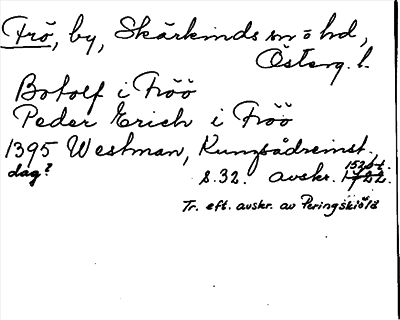 Frö, by, Skärkinds sn o hd,
Österg. l.
Botolf i Fröö
Peder Erich i Fröö
1395 Westman, Kungsådreinst.
dag? s. 32. avskr. 1722.
Tr. eft. avskr. av Peringskiöld